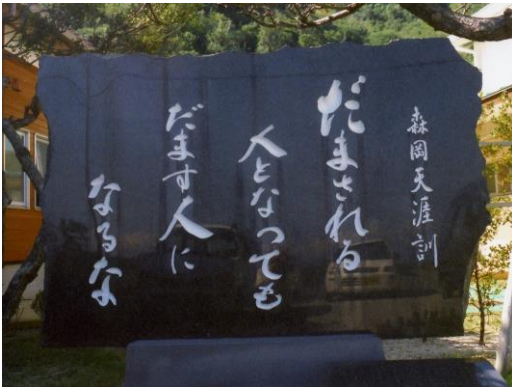 森岡天涯訓
だまされる
人となっても
だます人に
なるな